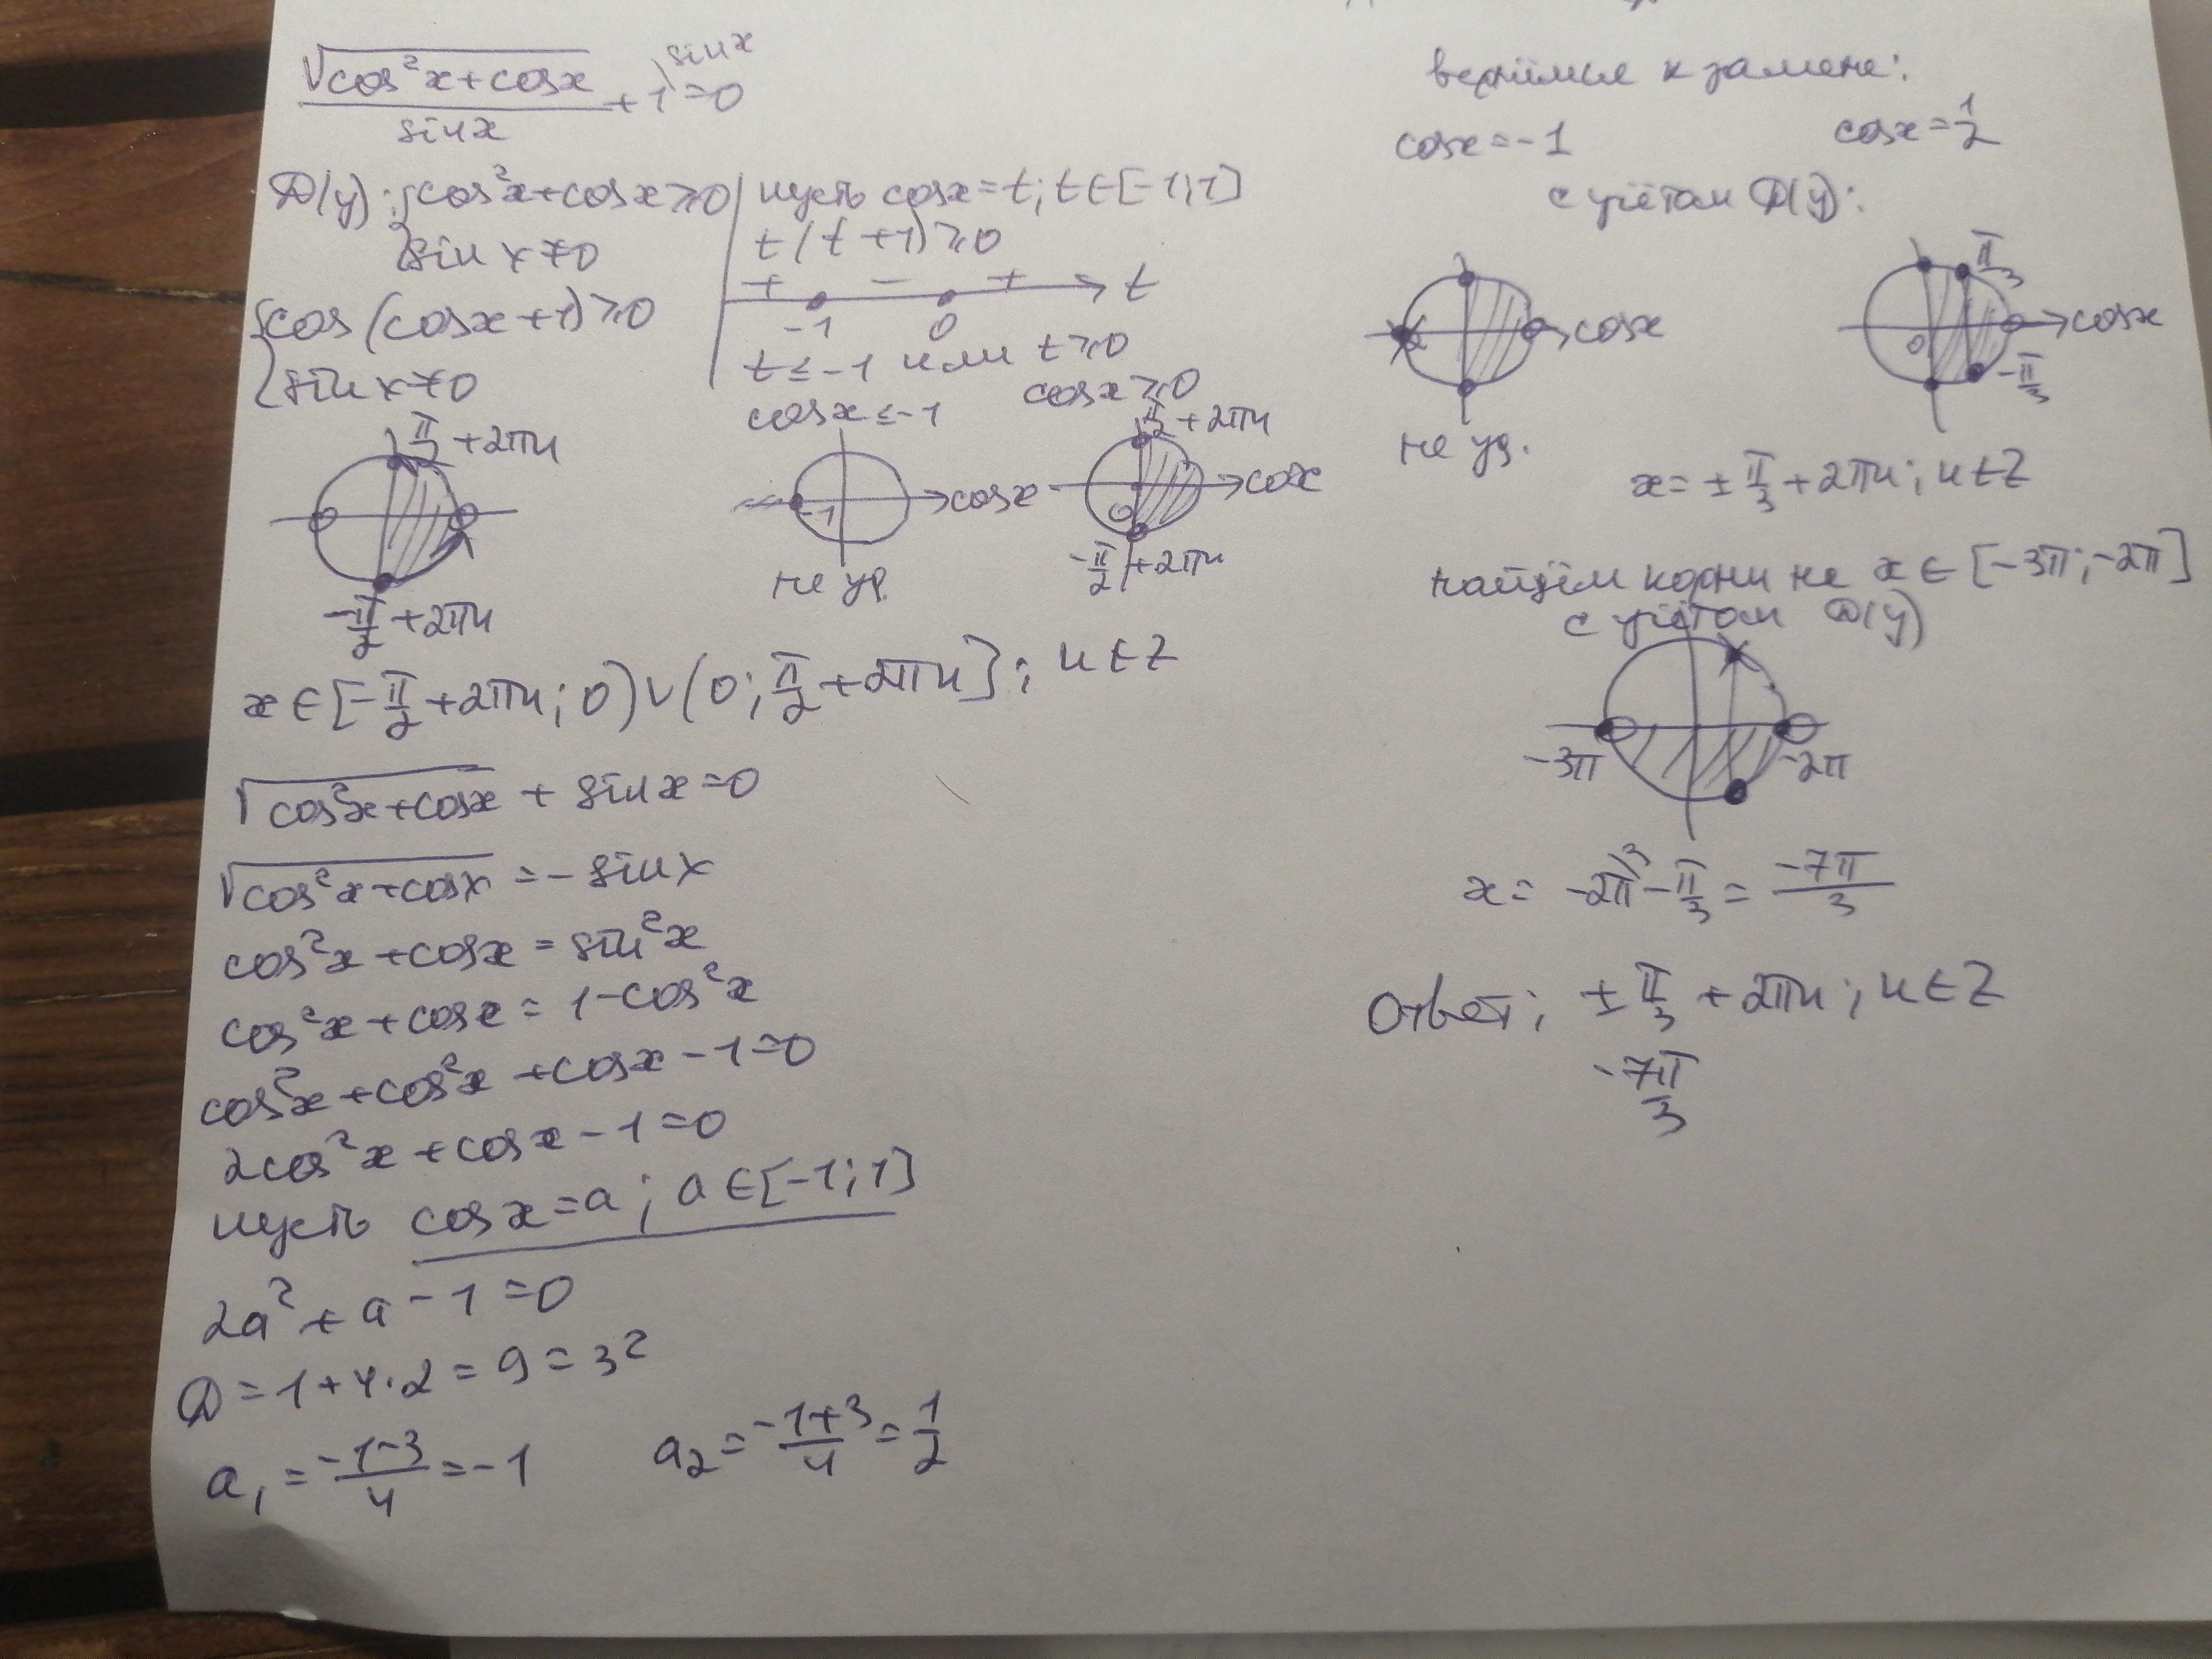 √(cos²x+cosx)/sinx + 1^{\sinx} =0
D(y): {cos²x+cosx⩾0
{sin x≠0
{cos (cosx+1)⩾0
{sin x≠0
пусть cosx=t; t∈[-1;1]
t(t+1)⩾0
+ - + t
-1 0
t⩽-1 или t⩾0
cosx⩽-1 cosx⩾0
π/2+2πn
-π/2+2πn
-1 cosx
не уд.
π/2+2πn
0 cosx
-π/2+2πn
x∈[-π/2+2πn; 0)∪(0; π/2+2πn]; n∈Z
√(cos²x+cosx) + sinx=0
√(cos²x+cosx) =-sinx
cos²x+cosx=sin²x
cos²x+cosx=1-cos²x
cos²x+cos²x+cosx-1=0
2cos²x+cosx-1=0
пусть cosx=a; a∈[-1;1]
2a²+a-1=0
D=1+4·2=9=3²
a₁=(-1-3)/4=-1 a₂=(-1+3)/4=1/2
вернёмся к замене:
cosx=-1 cosx=1/2
с учётом D(y):
cosx
π/3
0 cosx
-π/3
не уд.
x=±π/3+2πn; n∈Z
найдём корни на x∈[-3π;-2π]
с учётом D(y)
-3π -2π
x= -2π^{\3}-π/3=-7π/3
Ответ; ±π/3+2πn; n∈Z
-7π/3